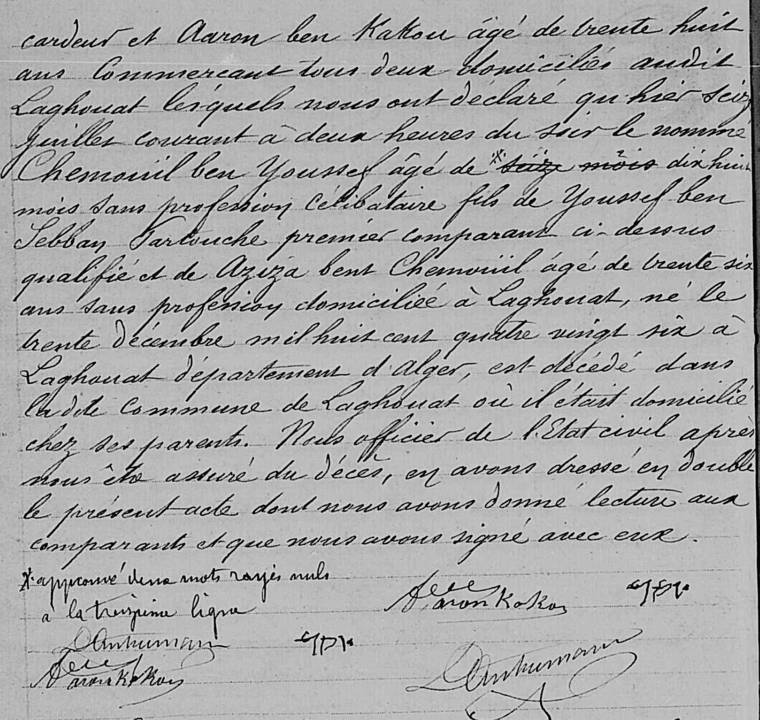 cardeur et Aaron ben Kakou âgé de trente huit
ans Commerçant tous deux domiciliés audit
Laghouat lesquels nous ont déclaré qu'hier seize
juillet courant à deux heures du soir le nommé
Chemouil ben Youssef âgé de * seize mois dix huit
mois sans profession célibataire fils de Youssef ben
Sebban Partouche premier comparant ci-dessus
qualifié et de Aziza bent Chemouil âgé de trente six
ans sans profession domiciliée à Laghouat, né le
trente décembre mil huit cent quatre vingt six à
Laghouat département d'Alger, est décédé dans
la dite Commune de Laghouat où il était domicilié
chez ses parents. Nous officier de l'Etat civil après
nous être assuré du décès, en avons dressé en double
le présent acte dont nous avons donné lecture aux
comparants et que nous avons signé avec eux.
* approuvé deux mots rayés nuls
à la treizième ligne
Aaron Kokou
Aaron Kokou